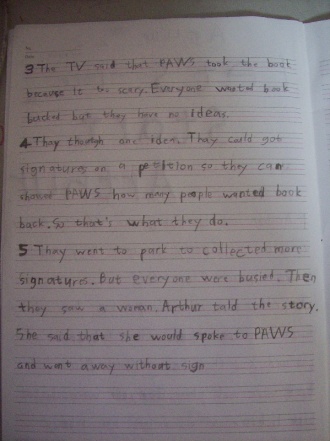 3 The TV said that PAWS took the book
because it to scary. Everyone wanted book
backed but they have no ideas.
4 Thay though one idea. Thay could got
signatures on a petition so they can
showed PAWS how many people wanted book
back. So that's what they do.
5 Thay went to park to collected more
signatures. But everyone were busied. Then
they saw a woman. Arthur told the story.
She said that she would spoke to PAWS
and want away without sign